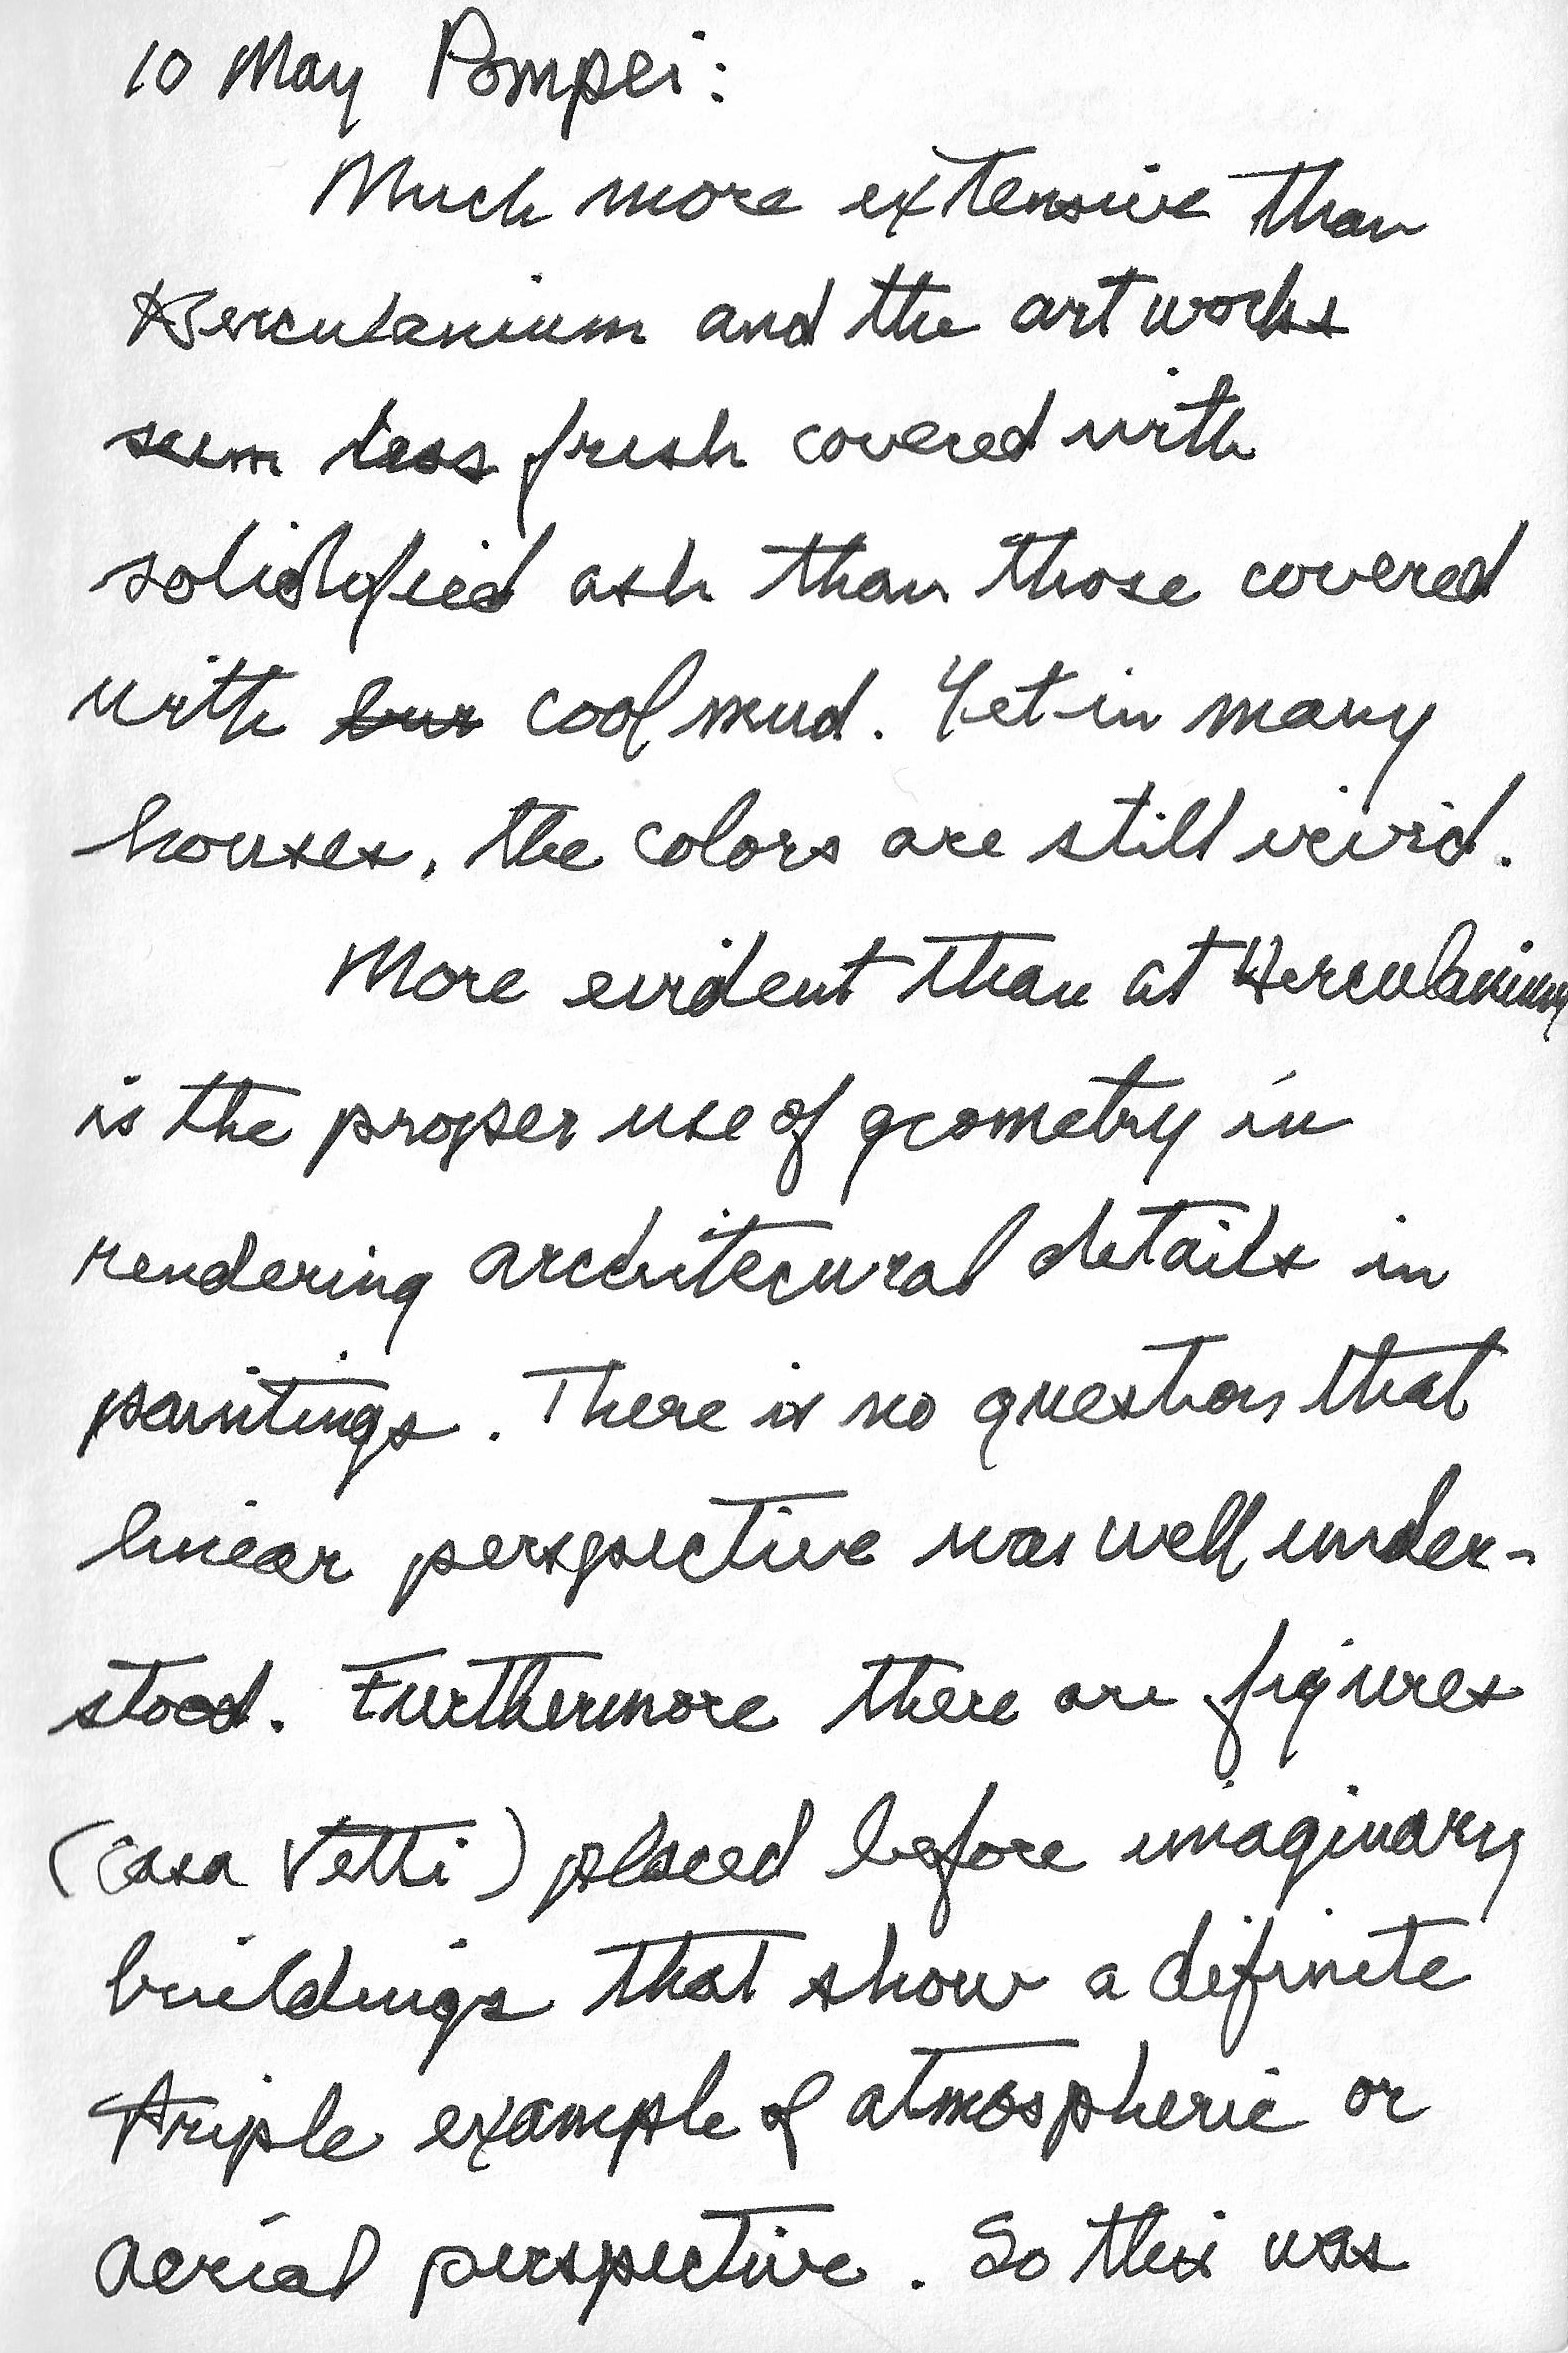 10 May Pompei:
Much more extensive than
Herculanium and the art works
seem less fresh covered with
solidified ash than those covered
with cool mud. Yet in many
houses, the colors are still vivid.
More evident than at Herculanium
is the proper use of geometry in
rendering architecural details in
paintings. There is no question that
linear perspective was well under-
stood. Furthermore there are figures
(Casa Vetti) placed before imaginary
buildings that show a definite
triple example of atmospheric or
aerial perspective. So this was